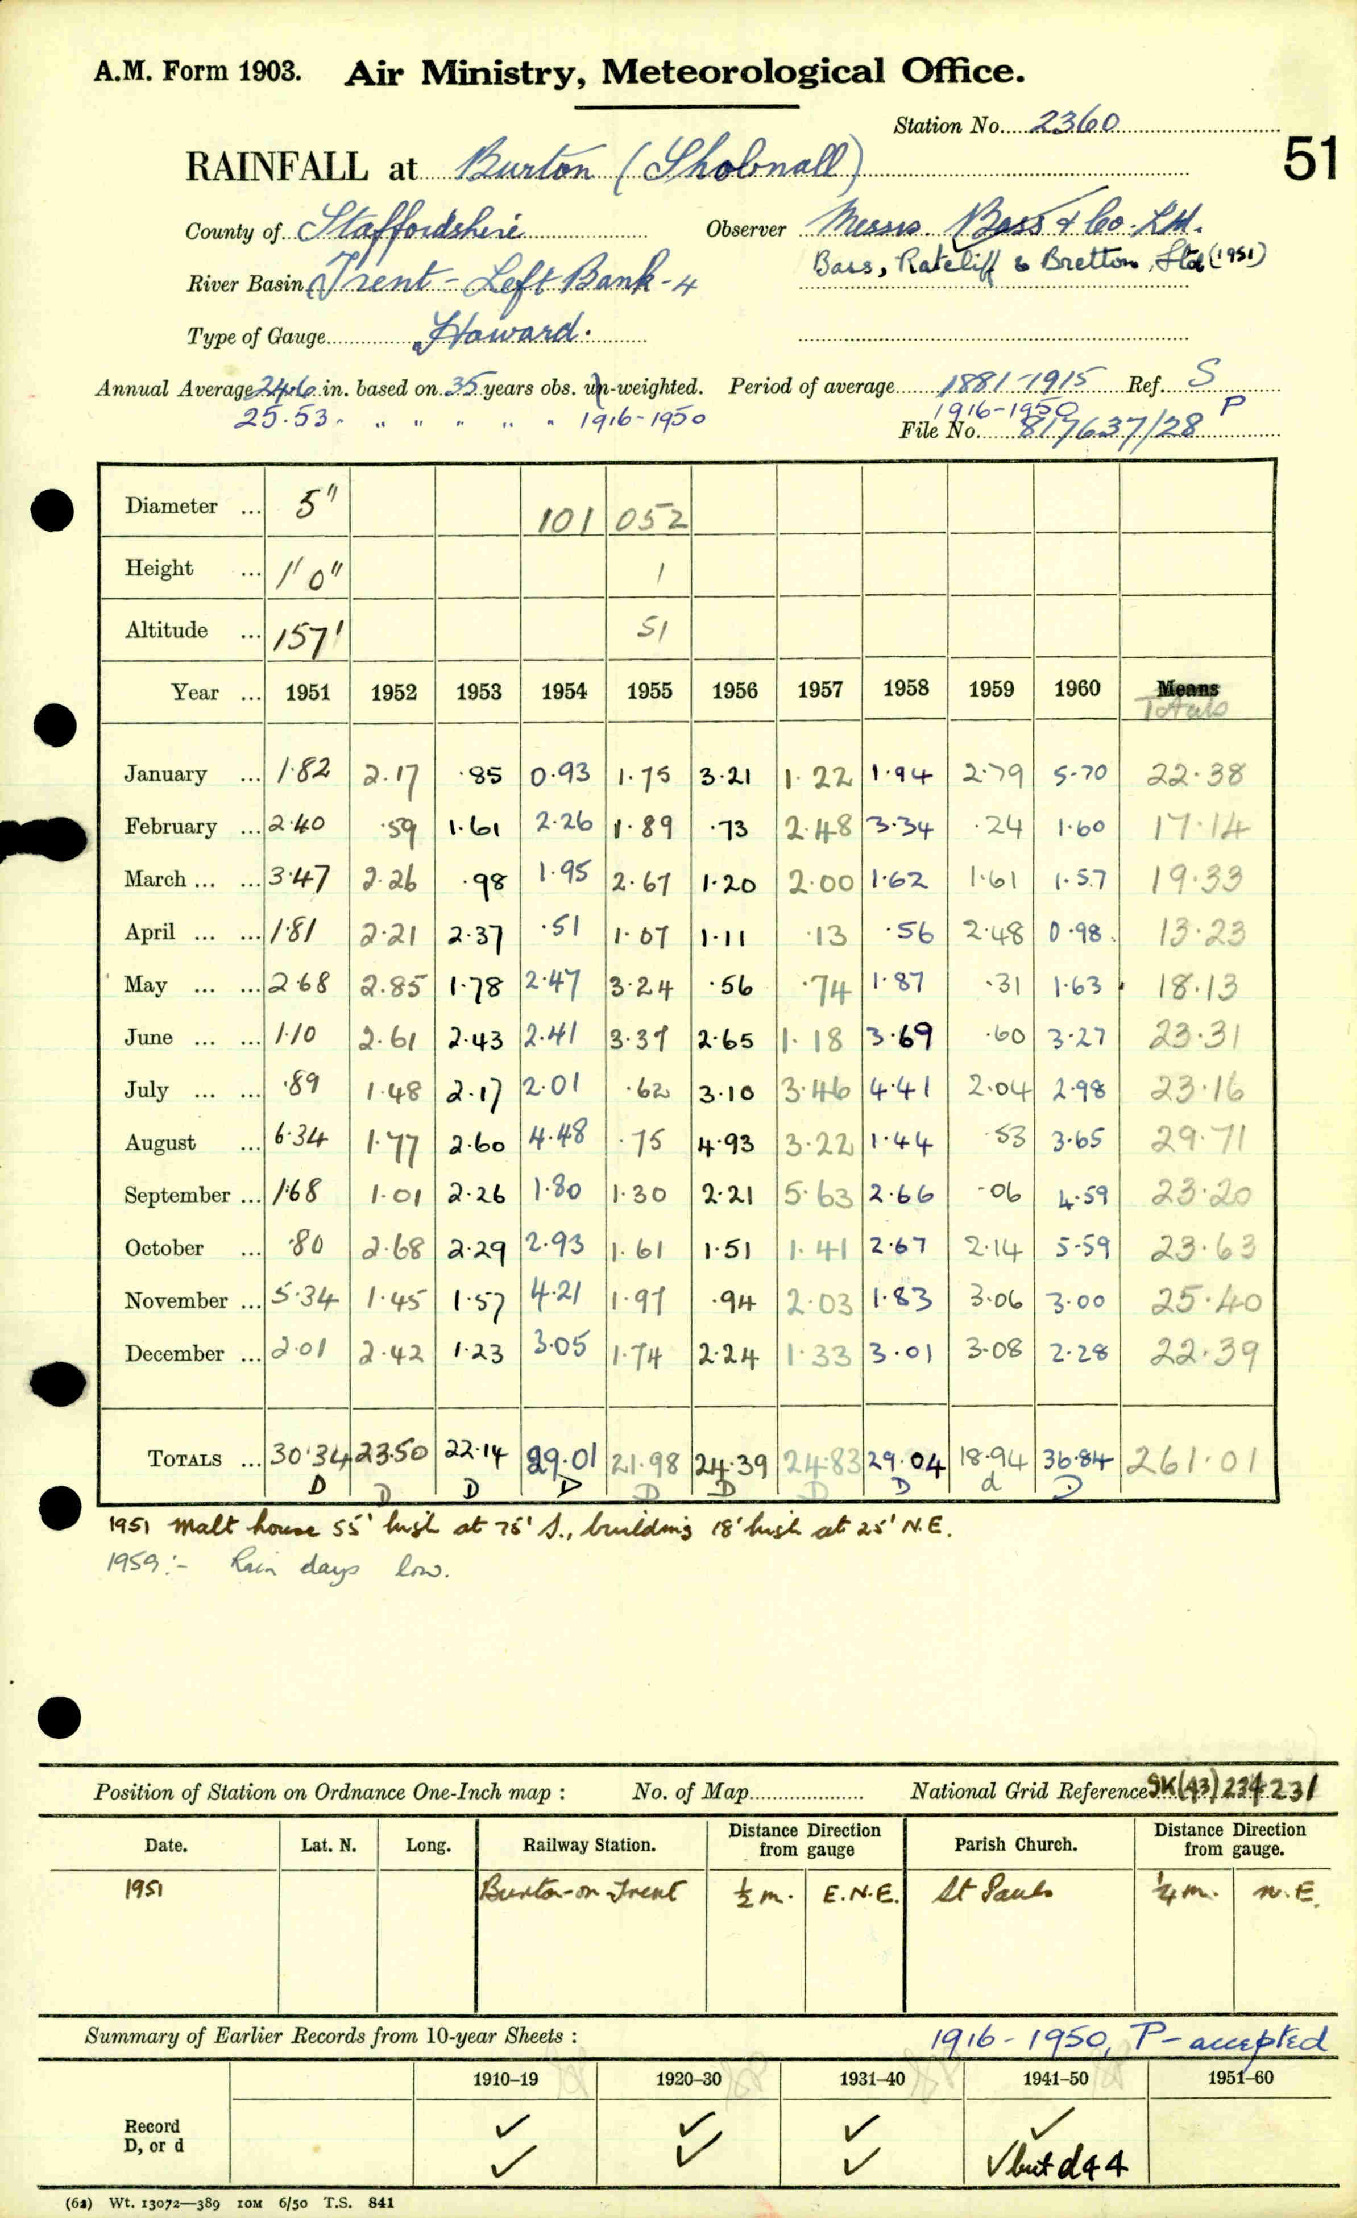 A.M. Form 1903. Air Ministry, Meteorological Office.
Station No. 2360
51
RAINFALL at Burton (Shobnall)
County of Staffordshire Observer Messrs. Bass & Co. Ltd.
Bass, Ratcliff & Bretton, Ltd (1951)
River Basin Trent - Left Bank - 4
Type of Gauge Howard.
Annual Average 24.6 in. based on 35 years obs. un-weighted. Period of average 1881-1915 Ref. S
25.53 " " " " " 1916-1950 1916-1950 P
File No. 817637/28
Diameter ... 5" 101 052
Height ... 1' 0" 1
Altitude ... 157' 51
Year ... 1951 1952 1953 1954 1955 1956 1957 1958 1959 1960 Means
Totals
January ... 1.82 2.17 .85 0.93 1.75 3.21 1.22 1.94 2.79 5.70 22.38
February ... 2.40 .59 1.61 2.26 1.89 .73 2.48 3.34 .24 1.60 17.14
March ... ... 3.47 2.26 .98 1.95 2.67 1.20 2.00 1.62 1.61 1.57 19.33
April ... ... 1.81 2.21 2.37 .51 1.07 1.11 .13 .56 2.48 0.98 13.23
May ... ... 2.68 2.85 1.78 2.47 3.24 .56 .74 1.87 .31 1.63 18.13
June ... ... 1.10 2.61 2.43 2.41 3.37 2.65 1.18 3.69 .60 3.27 23.31
July ... ... .89 1.48 2.17 2.01 .62 3.10 3.46 4.41 2.04 2.98 23.16
August ... 6.34 1.77 2.60 4.48 .75 4.93 3.22 1.44 .53 3.65 29.71
September ... 1.68 1.01 2.26 1.80 1.30 2.21 5.63 2.66 .06 4.59 23.20
October ... .80 2.68 2.29 2.93 1.61 1.51 1.41 2.67 2.14 5.59 23.63
November ... 5.34 1.45 1.57 4.21 1.97 .94 2.03 1.83 3.06 3.00 25.40
December ... 2.01 2.42 1.23 3.05 1.74 2.24 1.33 3.01 3.08 2.28 22.39
TOTALS ... 30.34 23.50 22.14 29.01 21.98 24.39 24.83 29.04 18.94 36.84 261.01
D D D D D D D D d D
1951 Malt house 55' high at 75' S., building 18' high at 25' N.E.
1959:- Rain days low.
Position of Station on Ordnance One-Inch map : No. of Map National Grid Reference SK(43)234231
Date. Lat. N. Long. Railway Station. Distance from Direction gauge Parish Church. Distance from Direction gauge.
1951 Burton-on-Trent ½ m. E.N.E. St Pauls ¼ m. N.E.
Summary of Earlier Records from 10-year Sheets : 1916 - 1950, P - accepted
1910–19 1920–30 1931–40 1941–50 1951–60
Record ✓ ✓ ✓ ✓
D, or d ✓ ✓ ✓ ✓ but d 44
(62) Wt. 13072—389 10M 6/50 T.S. 841